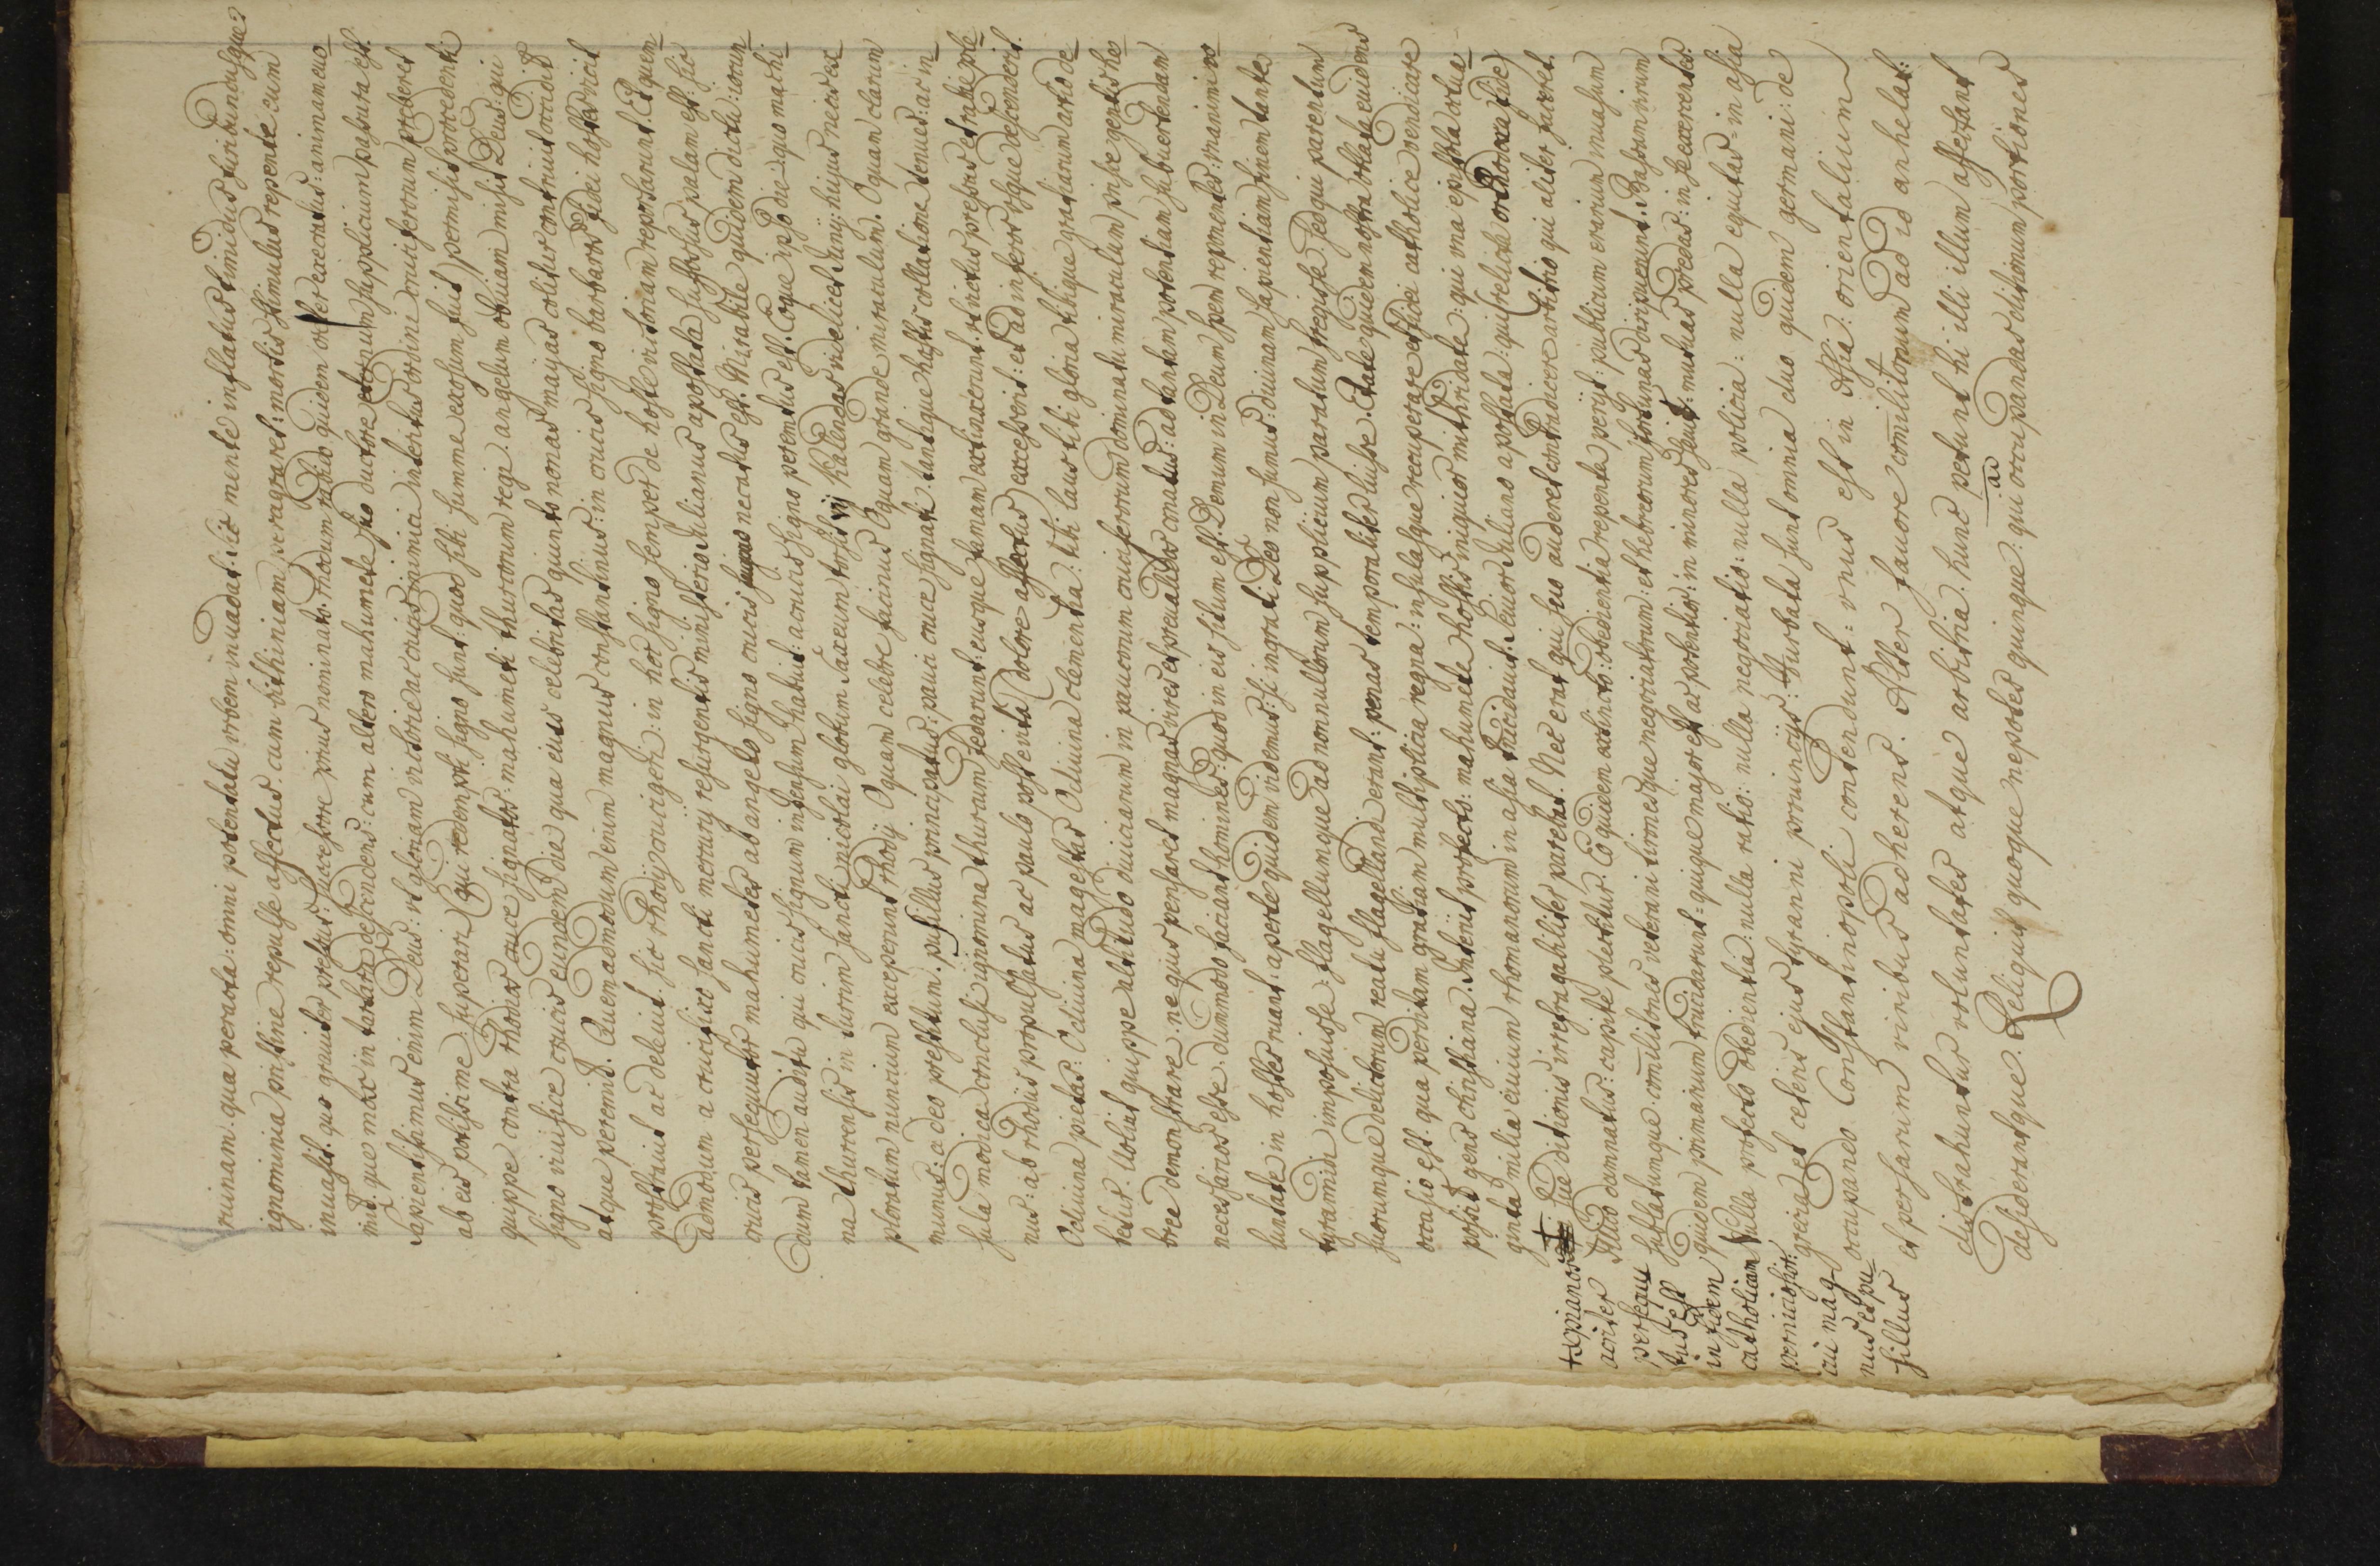 ruinam. qua peracta: omni potentatu orbem inuadat. sic mente inflatus timidus furibundusque
ignominia pristine repulse affectus. cum bithiniam peragraret: mortis stimulus repente eum
inuasit. quo grauiter pressus: successore prius nominato. modum quidem execratus: animam euo
mit. que mox in tartara descendens: cum altero mahumete suo ductore eternum supplicium passura est.
Sapientissimus enim Deus: vt gloriam victorie ac crucis inimici interitus ordine cruciferorum prederet
ab eis potissime superari (qui redempti signo sunt: quod sibi summe exosum fuit) permisit procedenti
quippe contra rhodios cruce signatos: mahumeti thurcorum regi. angelum obuiam misit Deus: qui
signo viuifice crucis eundem die qua eius celebritas quinto nonas mayas colitur contriuit occidit
atque peremit. Quemadmodum enim magnus constantinus: in crucis signo barbaros fidei hostes vicit
prostrauit ac deleuit sic rhodij crucigeri: in hoc signo semper de hoste victoriam reportarunt. Et quem
admodum a crucifixo sancti mercurij resurgentis ministerio Julianus apostata suffossus palam est: sic
crucis persequutor mahumetes ab angelo signo crucis necatus est. Mirabile quidem dictu: rerum
dum tamen auditu qui crucis signum infensum habuit: a crucis signo peremtus est. Eoque ipso die quo machi
na thurcensis in turrim sancti nicolai globum saxeum torsit vij kalendas videlicet Junij: hujus necis ex
ploratum nuncium exceperunt rhodij O quam celebre facinus O quam grande miraculum. O quam clarum
munus: a deo prestitum. pusillus principatus: pauci cruce signati tantique hostis collatione tenues: ac in
sula modica conclusi ignominia thurcum fedarunt: eiusque famam extinxerunt. victus pressus et rabie ple
nus: ab rhodiis propulsatus ac paulo post e vita (dolore affectus) excesserit: et ad inferos vsque descenderit.
O diuina pietas: O diuina magestas O diuina clementia: tibi laus tibi gloria tibique gratiarum actio de
betur. Voluit quippe altitudo diuiciarum in paucorum cruciferorum dominatu miraculum prise gentis he
bree demonstrare. ne quis pensaret magnas vires et preualidos conatus: ad tantam potentiam subuertendam
necessarios esse. dummodo faciant homines: quod in eis situm est. Demum in Deum spem reponentes: vnanimi vo
luntate in hostes ruant. aperte quidem videmus: si ingrati Deo non sumus: diuinam sapientiam finem tante
tyrannidi imposuisse: flagellumque ad nonnullorum supplicium paratum fregisse sed qui parentum
suorumque delictorum reatu flagellandi erant: penas temporaliter luisse. Etate quidem nostra oblata euidens
occasio est. qua perditam gratiam multiplicia regna: insulasque recuperare et fidei catholice vendicare
possit gens christiana. Interiit profecto: mahumete hostis iniquior mithridate: qui vna epistola octua
ginta milia ciuium rhomanorum in asia trucidauit. Seuior Juliano apostata: qui (relicta orthodoxa fide)
+ sue ditionis irrefragabiliter parebat. Nec erat qui suo auderet contradicere arbitrio qui aliter faceret.
Illico damnatus: capite plectitur. Eo quidem extincto: obedientia repente perijt: publicum erarium inuasum
sublatumque. comilitones veterani tironesque negociatorum: et hebreorum fortunas diripuerunt. Bassam virum
quidem primarium trucidarunt: quique major est ac potentior: in minores seuit: mutuas predas: in se exercentes
Nulla profecto obedientia: nulla ratio: nulla negociatio: nulla policia: nulla equitas in asia
grecia et ceteris ejus tyranni prouincijs: turbata sunt omnia duo quidem germani: de
occupando Constantinopoli contendunt: vnus est in Assia: orientalium
et persarum viribus adherens. Alter fauore comilitonum ad id anhelat:
distrahuntur voluntates atque arbitria. hunc petunt hi illi illum affectant
ac
desiderantque. Reliquis quoque nepotes quinque: qui occupandas ditionum portiones
+ xpianos
acriter
persequu
tus est
in fidem
catholicam
perniciosior:
cui mag
nus et pu
sillus